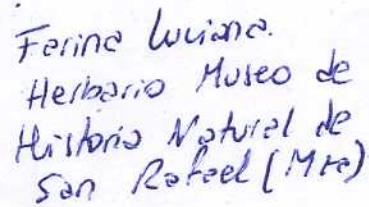 Farina Luciana.
Herbario Museo de
Historia Natural de
San Rafael (Mza)